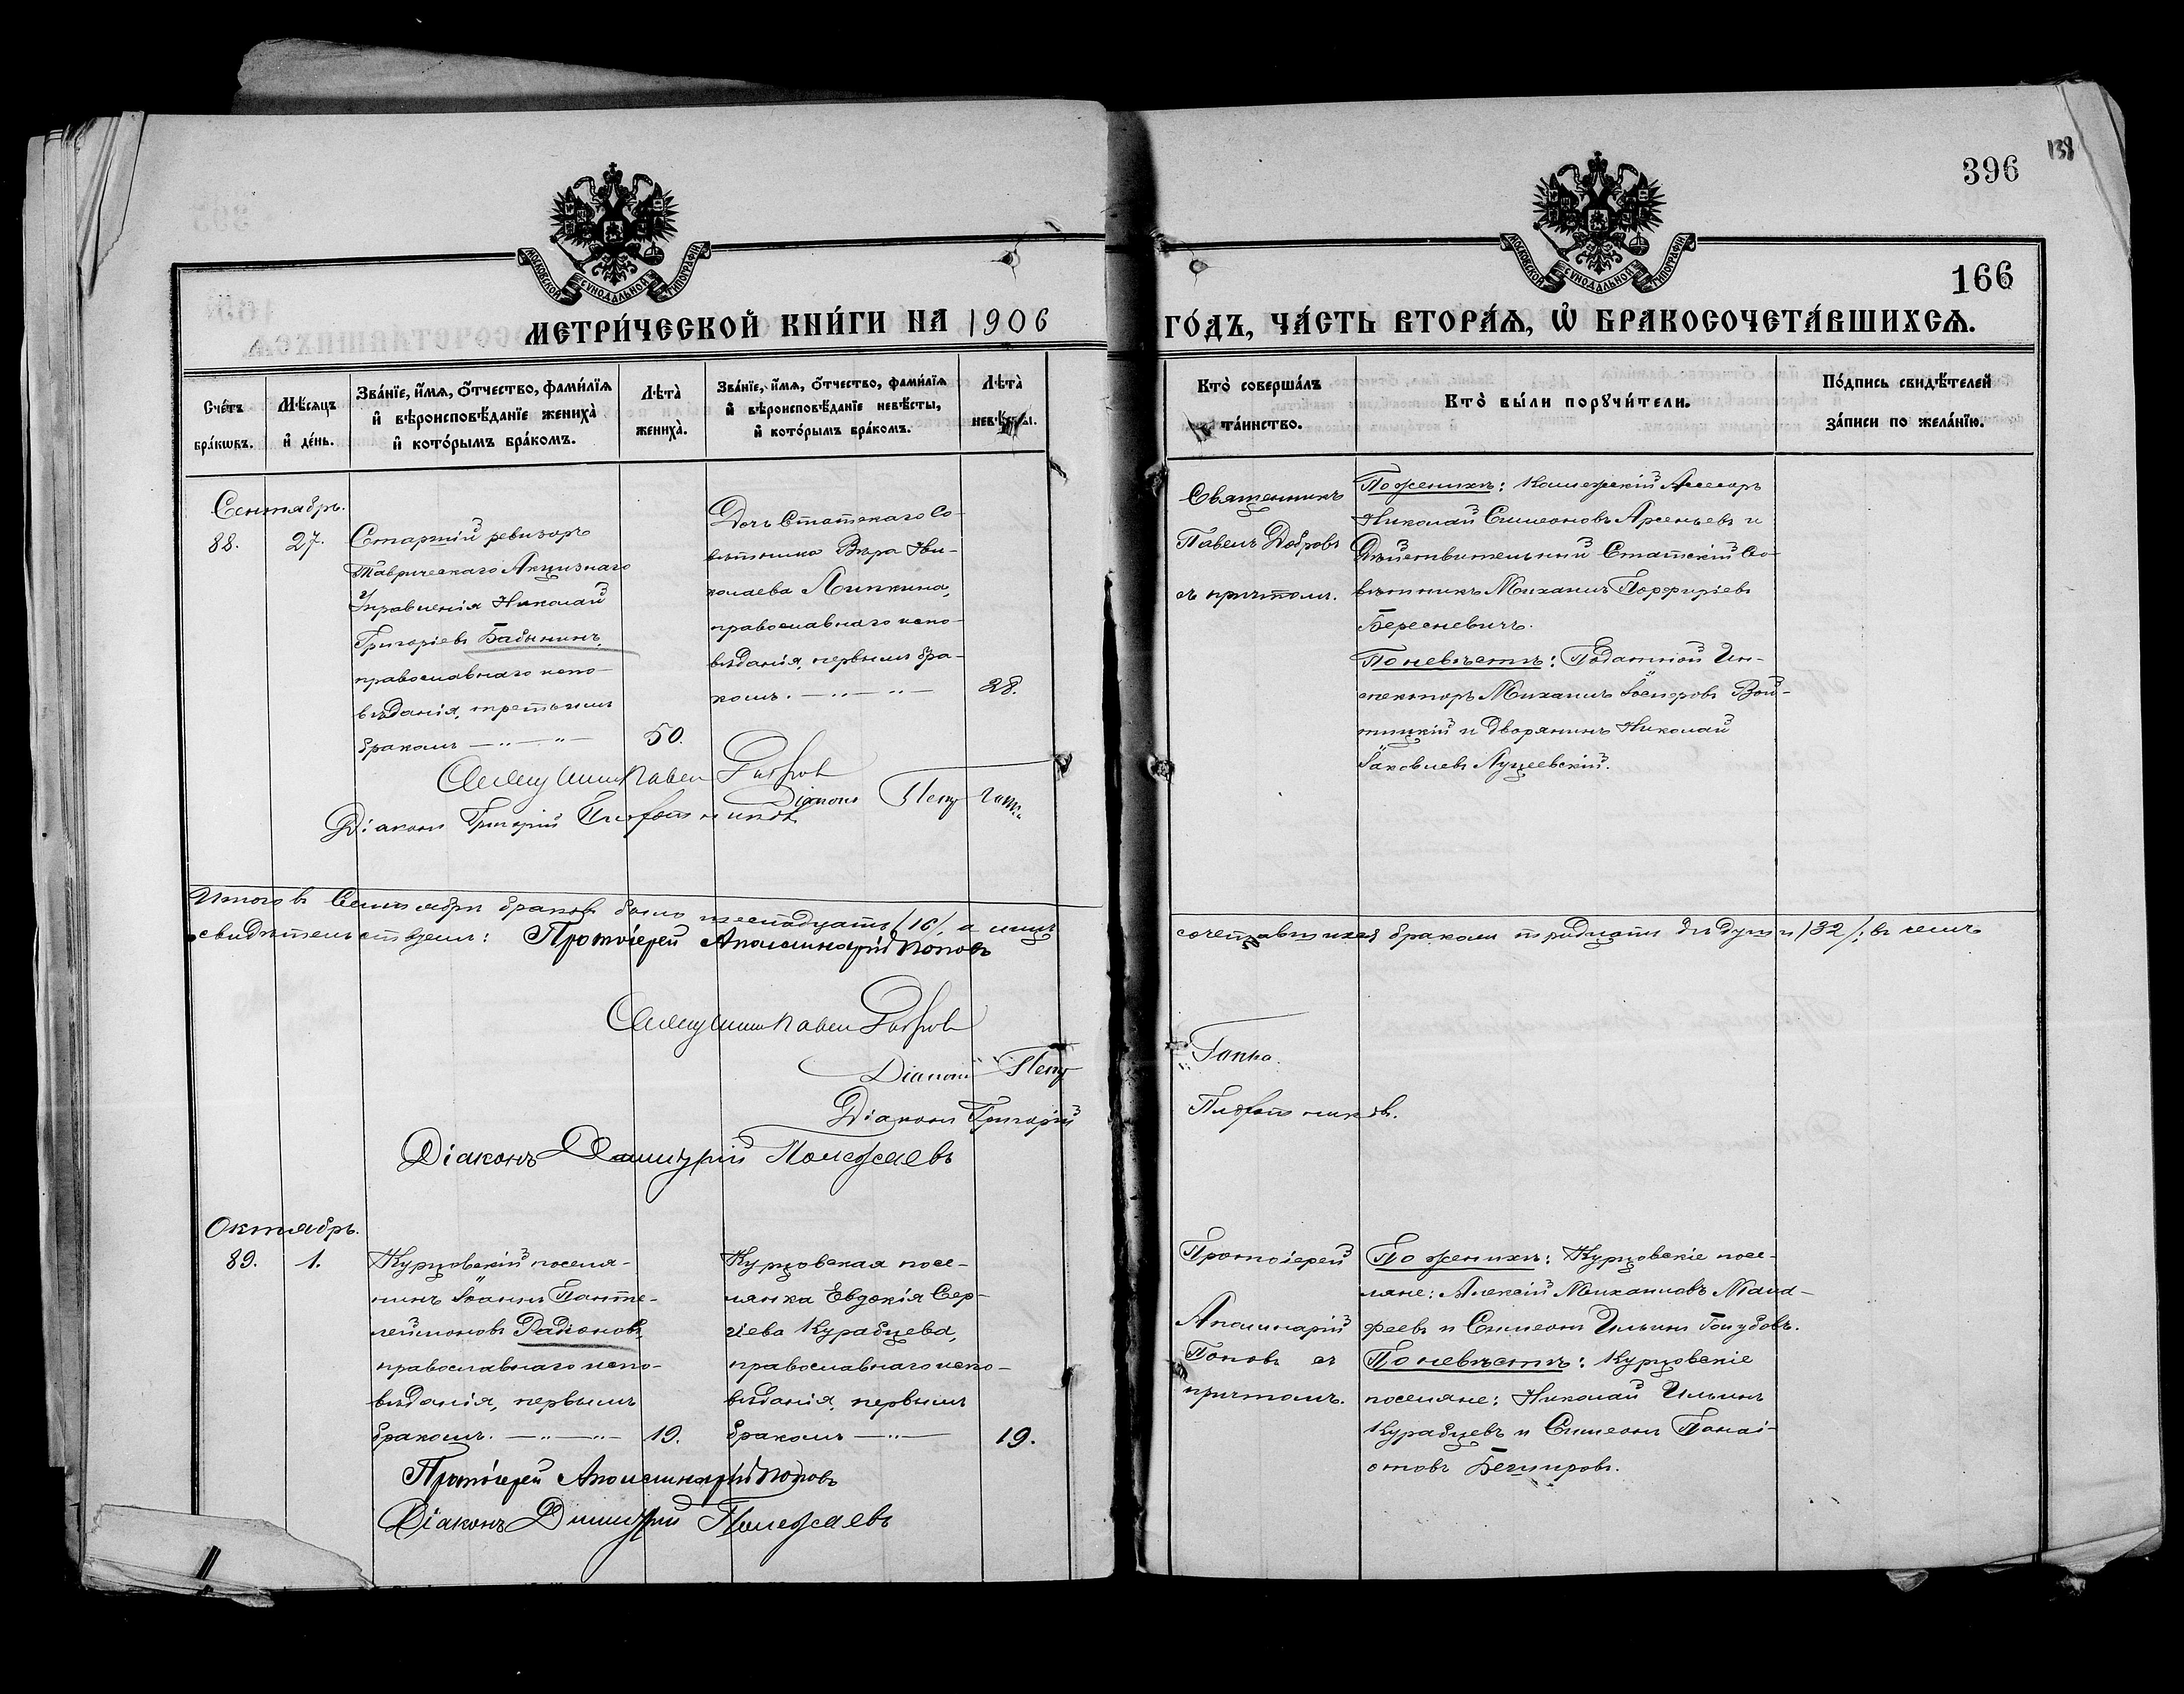 138
396
166
МОСКОВСКОЙ СѴНОДАЛЬНОЙ ТИПОГРАФІИ
МОСКОВСКОЙ СѴНОДАЛЬНОЙ ТИПОГРАФІИ
МЕТРИ́ЧЕСКОЙ КНИ́ГИ НА 1906
ГО́ДЪ, ЧА́СТЬ ВТОРА́Ѧ, Ѽ БРАКОСОЧЕТА́ВШИХСѦ.
Сче́тъ
бра́кѡвъ.
Мѣ́сяцъ
и҆ де́нь.
Зва́нїе, и҆́мѧ, ѻ҆́тчество, фами́лїѧ
и҆ вѣроисповѣ́данїе жениха̀
и҆ кото́рымъ бра́комъ.
Лѣта̀
жениха̀.
Зва́нїе, и҆́мѧ, ѻ҆́тчество, фами́лїѧ
и҆ вѣроисповѣ́данїе невѣ́сты,
и҆ кото́рымъ бра́комъ.
Лѣта̀
невѣ́сты.
Кто̀ соверша́лъ
та́инство.
Кто̀ бы́ли порꙋчи́тели.
По́дпись свидѣ́телей
за́писи по жела́нїю.
Сентябрь.
88.
27.
Старшій ревизоръ
Таврическаго Акцизнаго
Управленія Николай
Григоріевъ Бабынинъ,
православнаго испо-
вѣданія, третьимъ
бракомъ — „ — „ —
50.
Дочь Статскаго Со-
вѣтника Вѣра Ни-
колаева Липкина,
православнаго испо-
вѣданія, первымъ бра-
комъ. — „ — „ —
28.
Священникъ
Павелъ Добровъ
съ причтомъ.
По женихѣ: Коллежскій Ассесоръ
Николай Симеоновъ Арсеньевъ и
Дѣйствительный Статскій Со-
вѣтникъ Михаилъ Порфиріевъ
Бересневичъ.
По невѣстѣ: Податной Ин-
спекторъ Михаилъ Іосифовъ Вой-
тицкій и дворянинъ Николай
Іаковлевъ Луцевскій.
Священникъ Павелъ Добровъ
Діаконъ Петръ Гапка
Діаконъ Григорій Плотниковъ
Итого въ Сентябрѣ браковъ было шестнадцать /16/, а лицъ
сочетавшихся бракомъ тридцать двѣ души /32/; въ чемъ
свидѣтельствуемъ: Протоіерей Аполлинарій Поповъ
Священникъ Павелъ Добровъ
Діаконъ Петръ Гапка.
Діаконъ Григорій Плотниковъ.
Діаконъ Димитрій Полежаевъ
Октябрь.
89.
1.
Курцовскій поселя-
нинъ Іоаннъ Панте-
леймоновъ Радіоновъ,
православнаго испо-
вѣданія, первымъ
бракомъ. — „ — „ —
19.
Курцовская посе-
лянка Евдокія Сер-
гіева Курабцева,
православнаго испо-
вѣданія, первымъ
бракомъ — „ —
19.
Протоіерей
Аполинарій
Поповъ съ
причтомъ.
По женихѣ: Курцовскіе посе-
ляне: Алексій Михаиловъ Мала-
феевъ и Симеонъ Ильинъ Голубовъ.
По невѣстѣ: Курцовскіе
поселяне: Николай Ильинъ
Курабцевъ и Симеонъ Панаі-
отовъ Беглировъ.
Протоіерей Аполлинарій Поповъ
Діаконъ Димитрій Полежаевъ